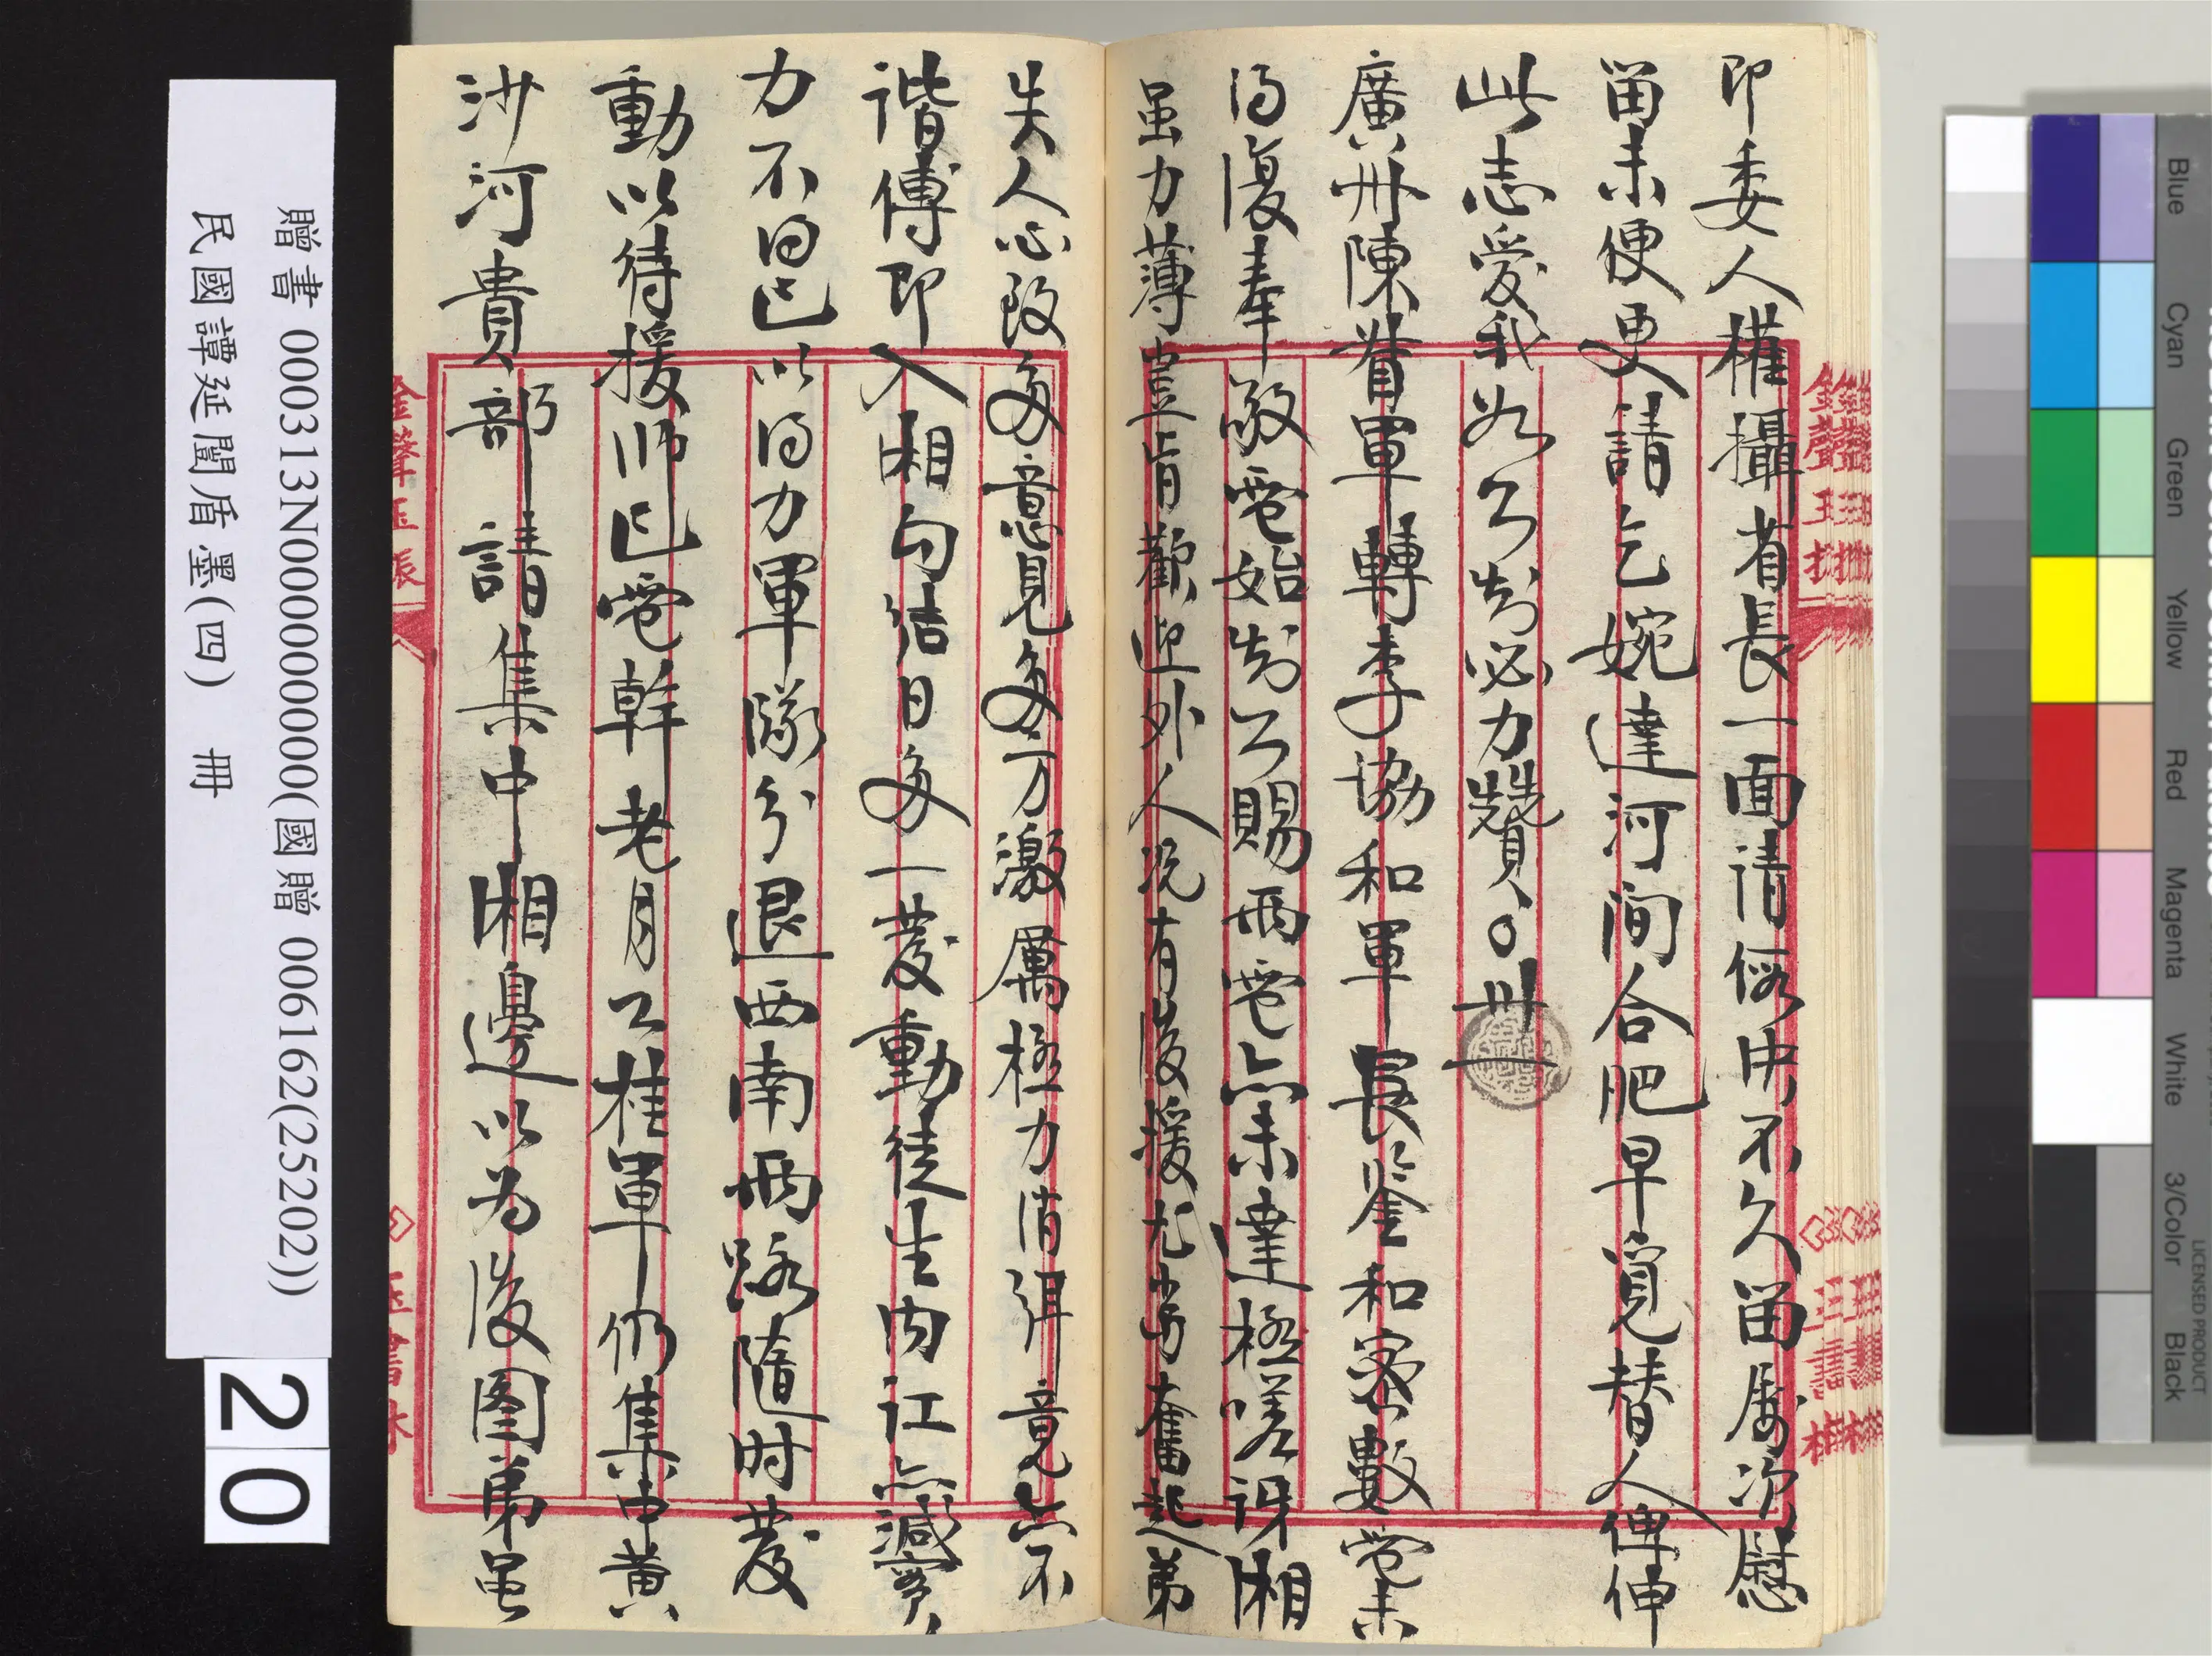 即委人權攝省長一面請假中不久留屢次慰
留未便更請乞婉達河間合肥早覓替人俾伸
此志愛我如公必力贊、○卅一
廣州陳督軍轉李協和軍長鑒和密數電未
得復奉敬電始知公賜兩電亦未達極嗟訝湘
虽力薄豈肯歡迎外人况有後援尤當奮起弟
失人心致多意見多方激厲極力消弭竟亦不
諧傅即入湘勾結日多一發動徒生内訌亦減實
力不得已以得力軍隊分退西南兩路隨时發
動以待援师已電幹老月公桂軍仍集中黄
沙河貴部請集中湘邊以为後图弟虽
贈書 000313N000000000(國贈 006162(25202))
民國譚延闓盾墨(四) 冊
20
Blue
Cyan
Green
Yellow
Red
Magenta
White
3/Color
Black
LICENSED PRODUCT